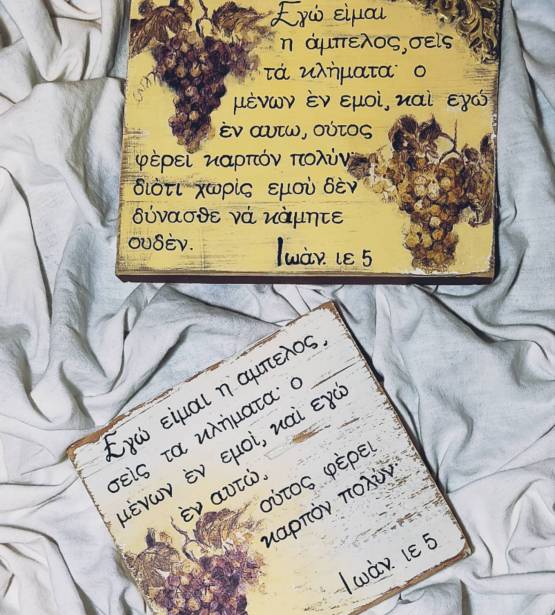 Εγώ εἰμαι
η άμπελος, σεὶς
τά κλήματα· ο
μένων ὲν εμοὶ, καὶ εγώ
ὲν αυτω, ούτος
φὲρεὶ καρπόν πολύν,
διότι χωρὶς εμού δὲν
δύνασθε νά κὰμητε
ουδὲν.
Ιωὰν. ιε 5
Εγώ εἰμαι η αμπελος,
σεὶς τα κλήματα· ο
μένων ὲν εμοὶ, καὶ εγώ
ὲν αυτώ,
ούτος φὲρει
καρπόν πολύν·
Ιωὰν. ιε 5